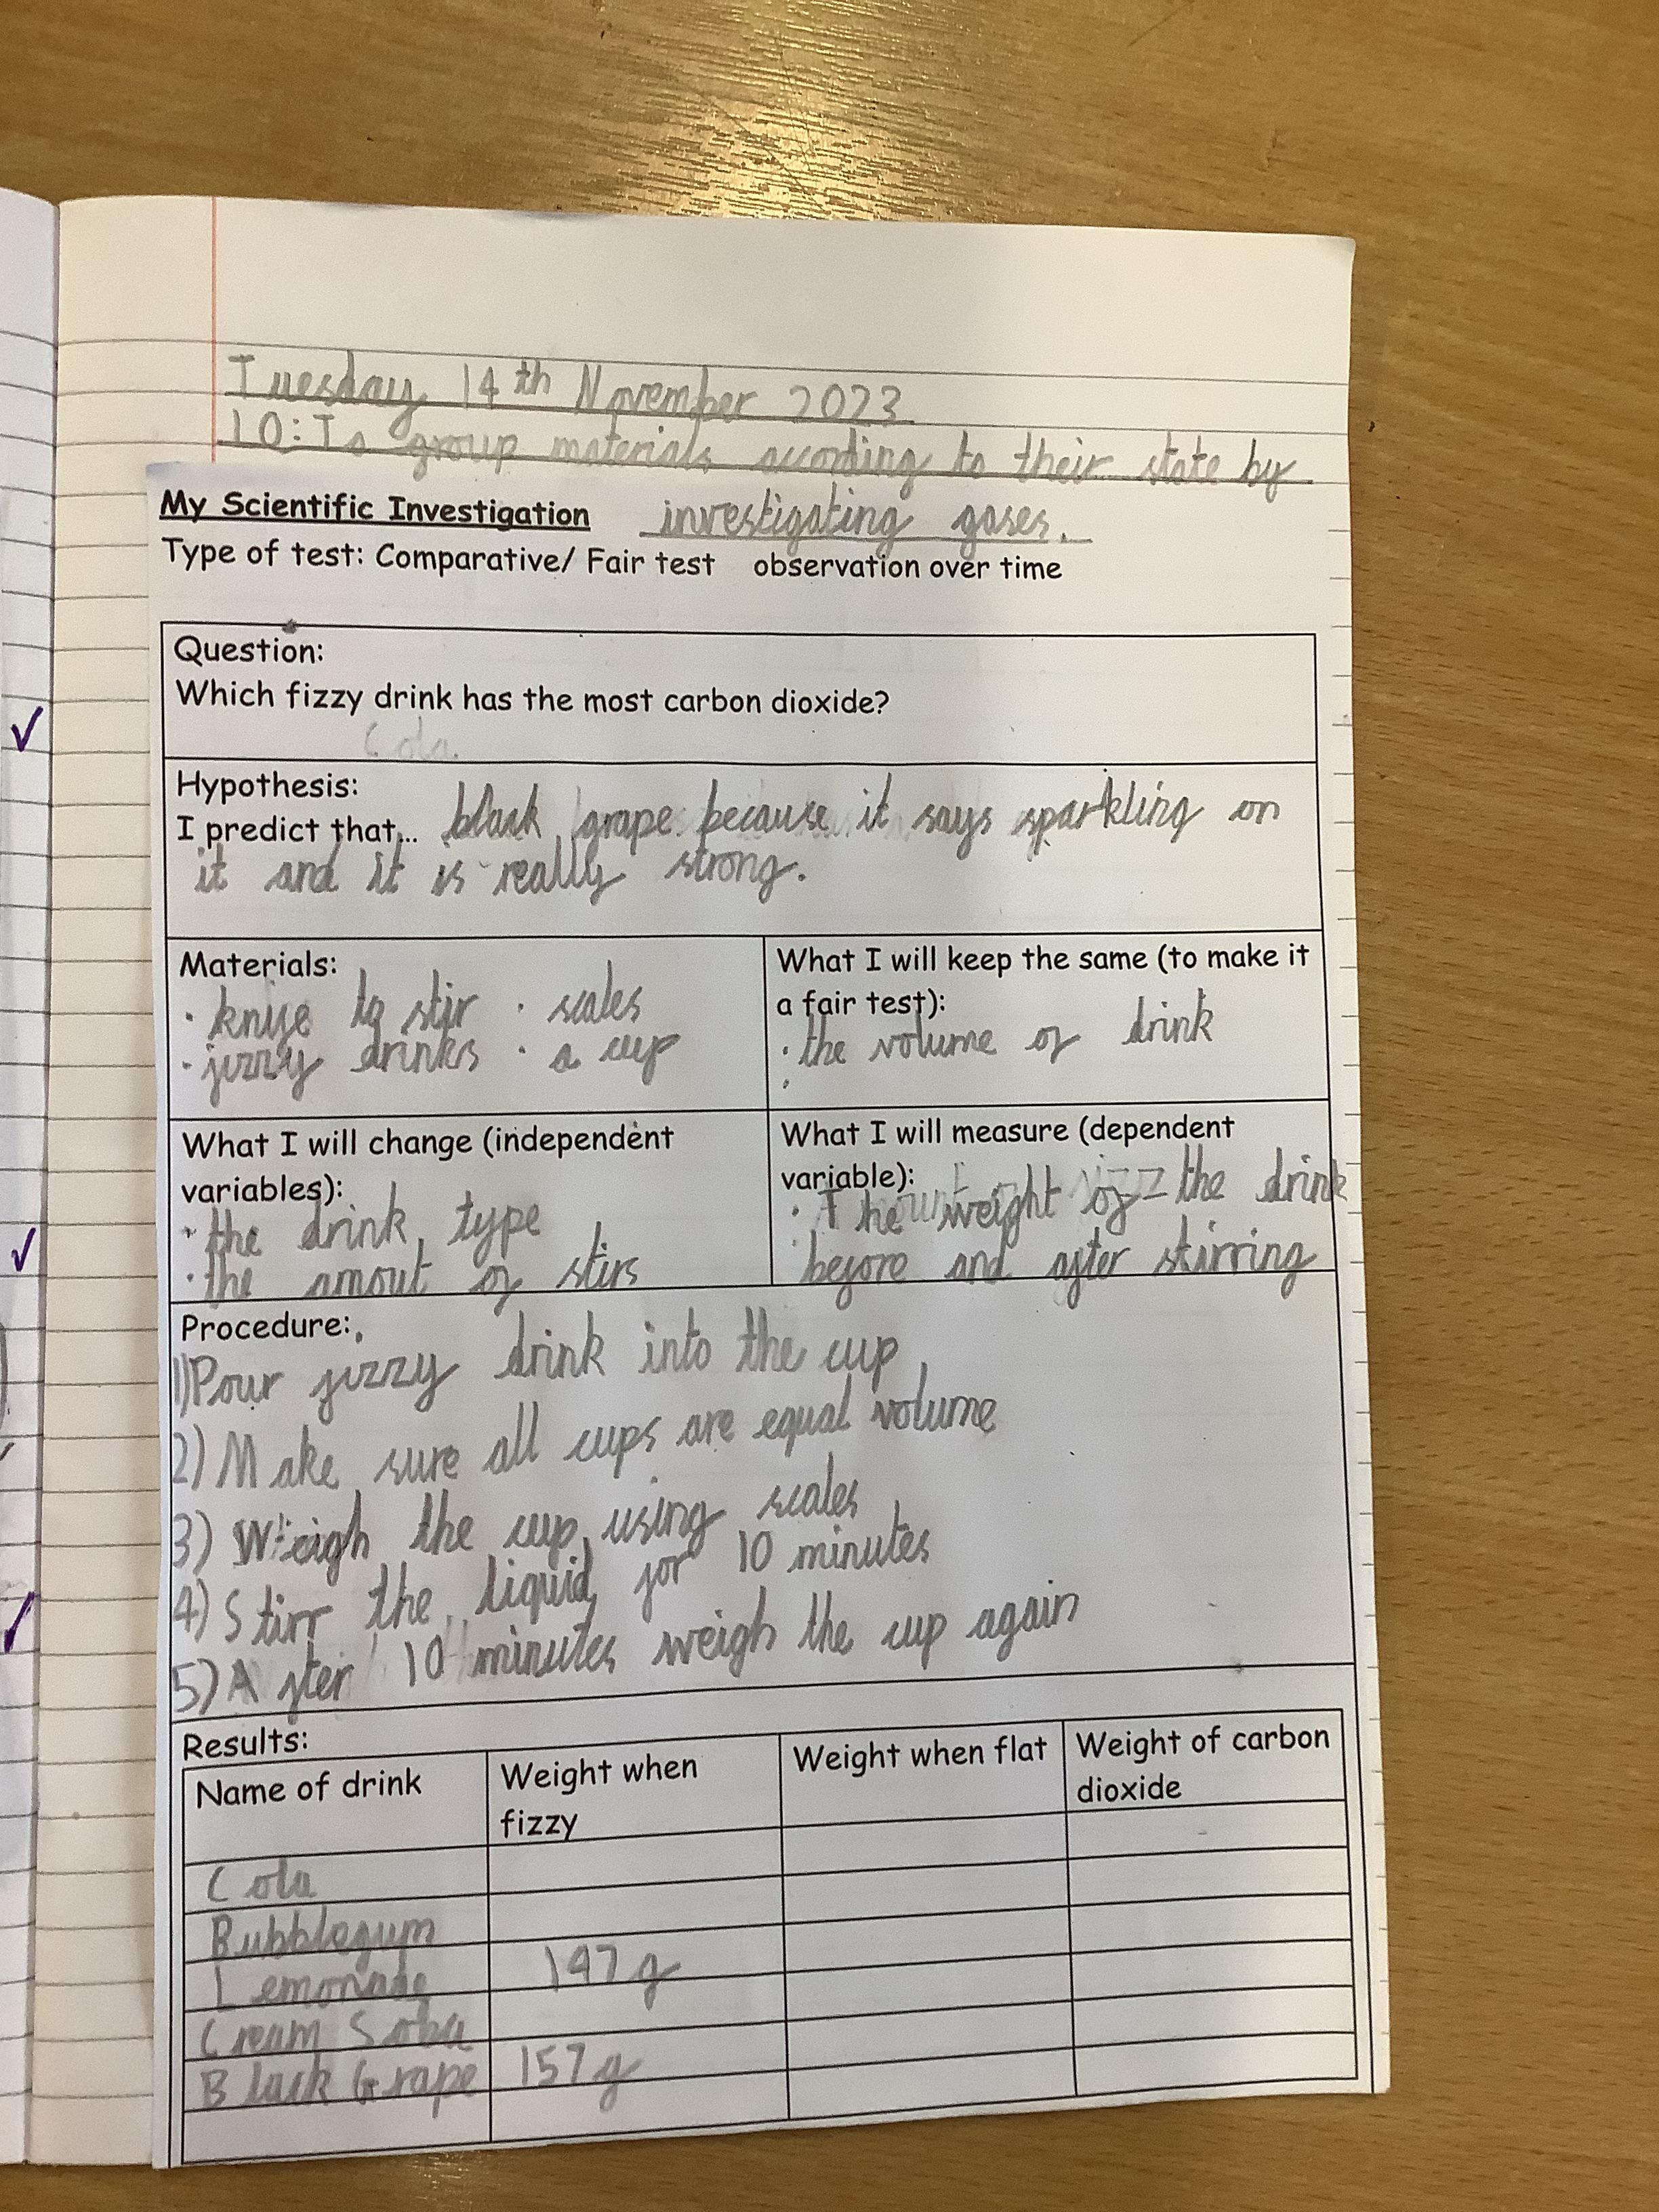 Tuesday 14th November 2023
LO: To group materials according to their state by
My Scientific Investigation investigating gases.
Type of test: Comparative/ Fair test observation over time
Question:
Which fizzy drink has the most carbon dioxide?
Cola.
Hypothesis:
I predict that... black grape because it says sparkling on
it and it is really strong.
Materials:
· knife to stir · scales
· fizzy drinks · a cup
What I will keep the same (to make it
a fair test):
· the volume of drink
·
What I will change (independent
variables):
· the drink type
· the amout of stirs
What I will measure (dependent
variable):
· The weight of the drink
before and after stirring
Procedure:
1) Pour fizzy drink into the cup
2) Make sure all cups are equal volume
3) Weigh the cup using scales
4) Stirr the liquid for 10 minutes
5) After 10 minutes weigh the cup again
Results:
Name of drink Weight when fizzy Weight when flat Weight of carbon dioxide
Cola
Bubblegum
Lemonade 147g
Cream Soba
Black Grape 157g